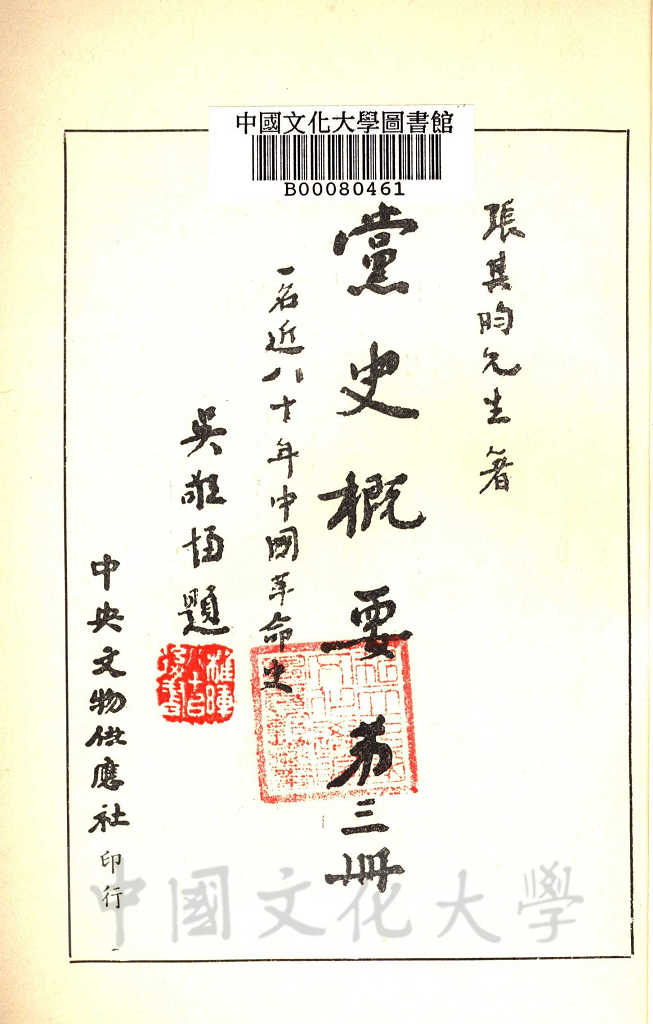 中國文化大學圖書館
B00080461
張其昀先生著
黨史概要第三冊
一名近八十年中國革命史
吳敬恆題
中央文物供應社印行
中國文化大學